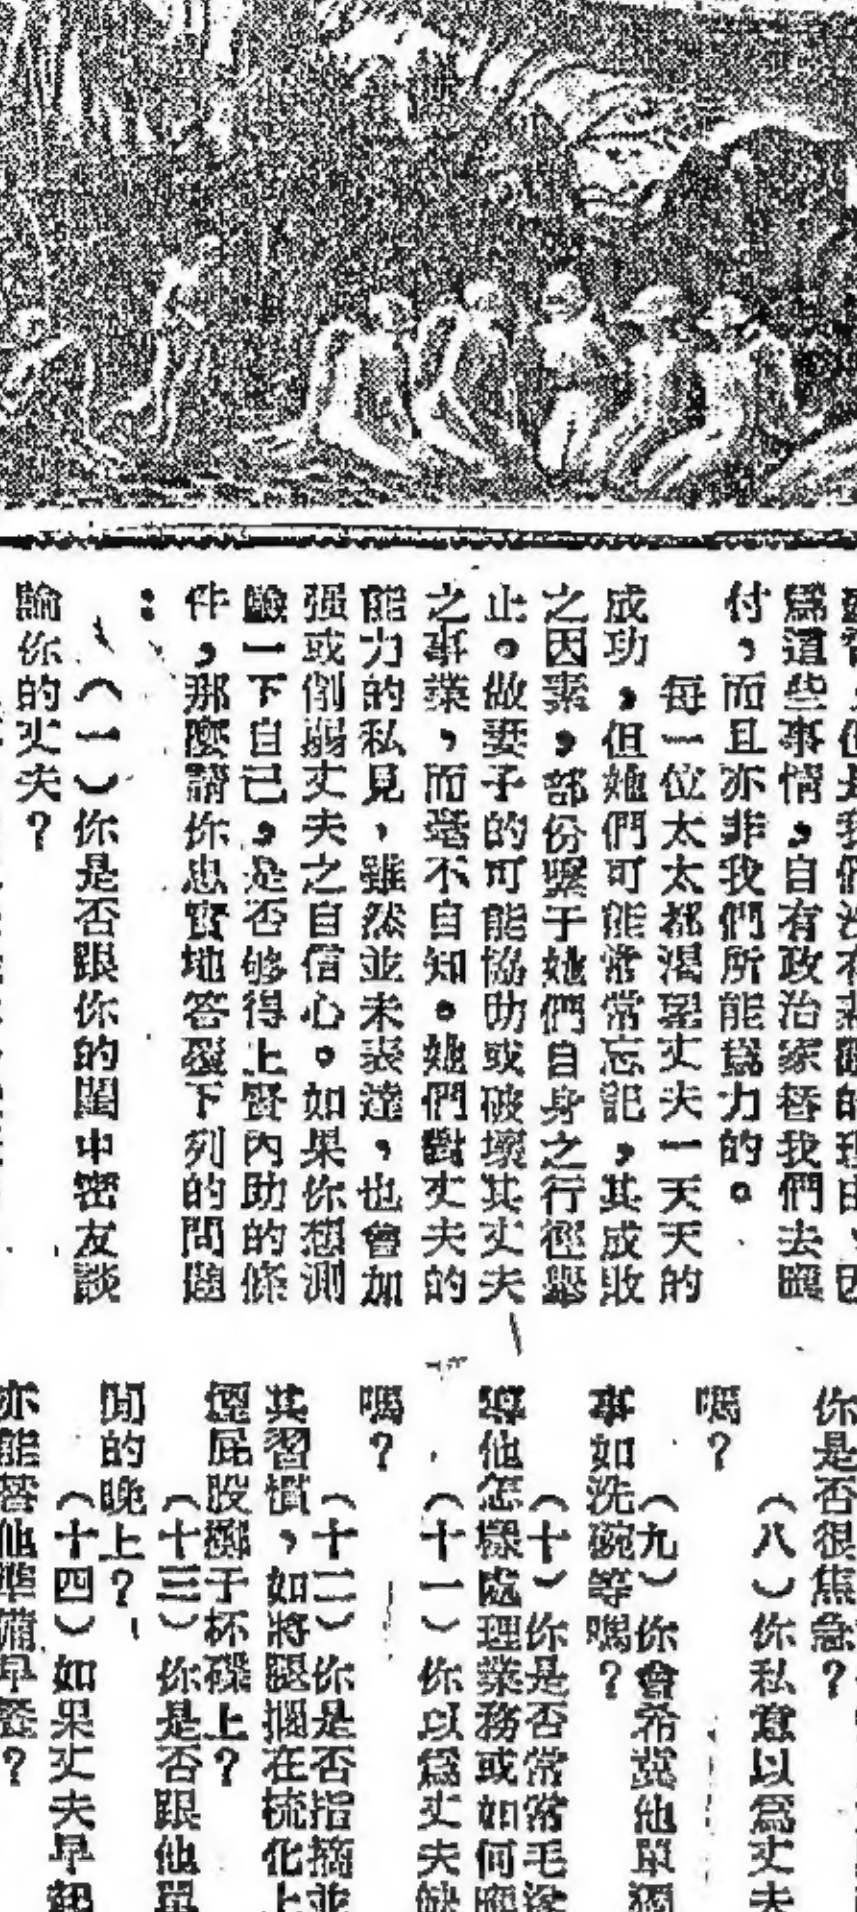 爲這些事情，自有政治家替我們去應
付，而且亦非我們所能爲力的。
每一位太太都渴望丈夫一天天的
成功，但她們可能常常忘記，其成敗
之因素，部份繫于她們自身之行徑舉
止。做妻子的可能協助或破壞其丈夫
之事業，而毫不自知。她們對丈夫的
能力的私見，雖然並未表達，也會加
强或削弱丈夫之自信心。如果你想測
驗一下自己，是否够得上賢內助的條
件，那麽請你忠實地答覆下列的問題
：
（一）你是否跟你的閨中密友談
論你的丈夫？
你是否很焦急？
（八）你私意以爲丈夫
嗎？
（九）你會希冀他單獨
事如洗碗等嗎？
（十）你是否常常毛遂
導他怎樣處理業務或如何應
（十一）你以爲丈夫缺
嗎？
（十二）你是否指摘並
其習慣，如將腿擱在梳化上
煙屁股擲于杯碟上？
（十三）你是否跟他單
閒的晚上？
（十四）如果丈夫早起
亦能替他準備早餐？